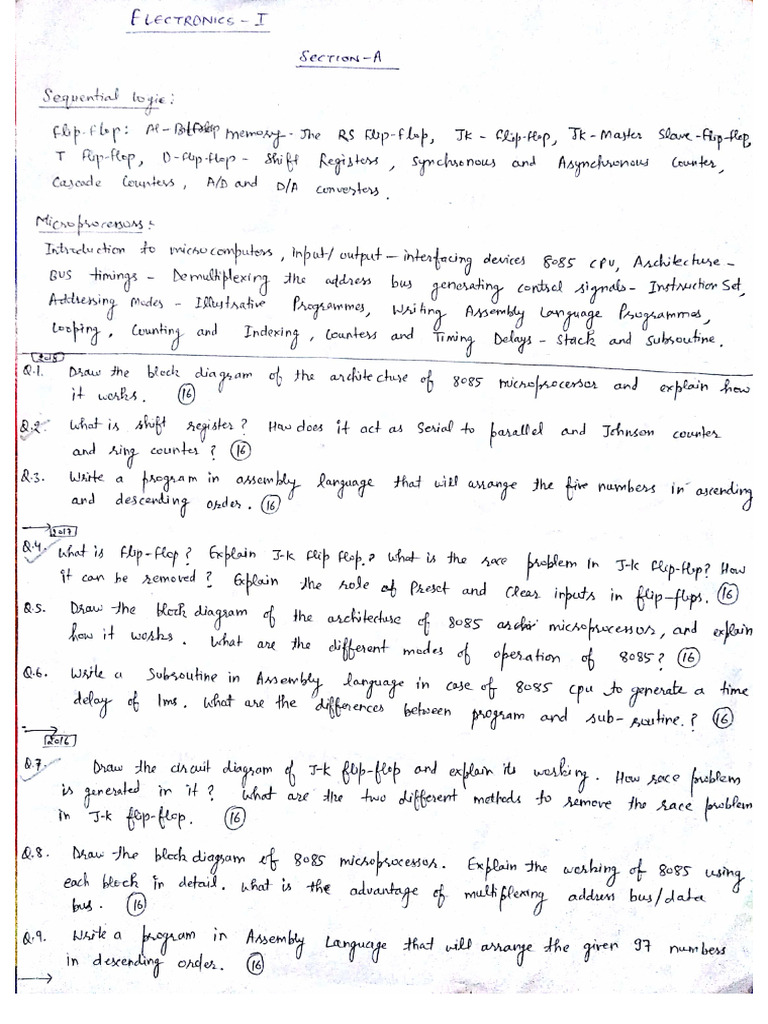 ELECTRONICS - I
SECTION-A
Sequential Logic:
Flip-flop: Memory - The RS Flip-flop, JK - flip-flop, JK-Master Slave-flip-flop,
T flip-flop, D-flip-flop - Shift Registers, Synchronous and Asynchronous Counter,
Cascade Counters, A/D and D/A converters.
Microprocessors:
Introduction to microcomputers, input/output - interfacing devices 8085 CPU, Architecture -
BUS timings - Demultiplexing the address bus generating control signals - Instruction Set,
Addressing Modes - Illustrative Programmes, Writing Assembly Language Programmes,
Looping, Counting and Indexing, Counters and Timing Delays - Stack and Subroutine.
2015
Q.1. Draw the block diagram of the architecture of 8085 microprocessor and explain how
it works. (16)
Q.2. What is shift register? How does it act as Serial to parallel and Johnson counter
and ring counter? (16)
Q.3. Write a program in assembly language that will arrange the five numbers in ascending
and descending order. (16)
2017
Q.4. What is Flip-flop? Explain J-K flip flop? What is the race problem in J-K flip-flop? How
it can be removed? Explain the role of Preset and Clear inputs in flip-flops. (16)
Q.5. Draw the block diagram of the architecture of 8085 microprocessor, and explain
how it works. What are the different modes of operation of 8085? (16)
Q.6. Write a Subroutine in Assembly language in case of 8085 cpu to generate a time
delay of 1ms. What are the differences between program and sub-routine.? (16)
2016
Q.7. Draw the circuit diagram of J-k flip-flop and explain its working. How race problem
is generated in it? What are the two different methods to remove the race problem
in J-k flip-flop. (16)
Q.8. Draw the block diagram of 8085 microprocessor. Explain the working of 8085 using
each block in detail. What is the advantage of multiplexing address bus/data
bus. (16)
Q.9. Write a program in Assembly Language that will arrange the given 97 numbers
in descending order. (16)